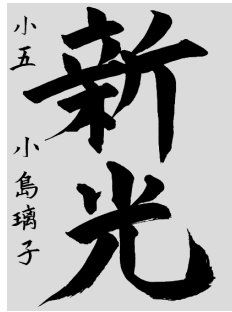 新光
小五 小島璃子